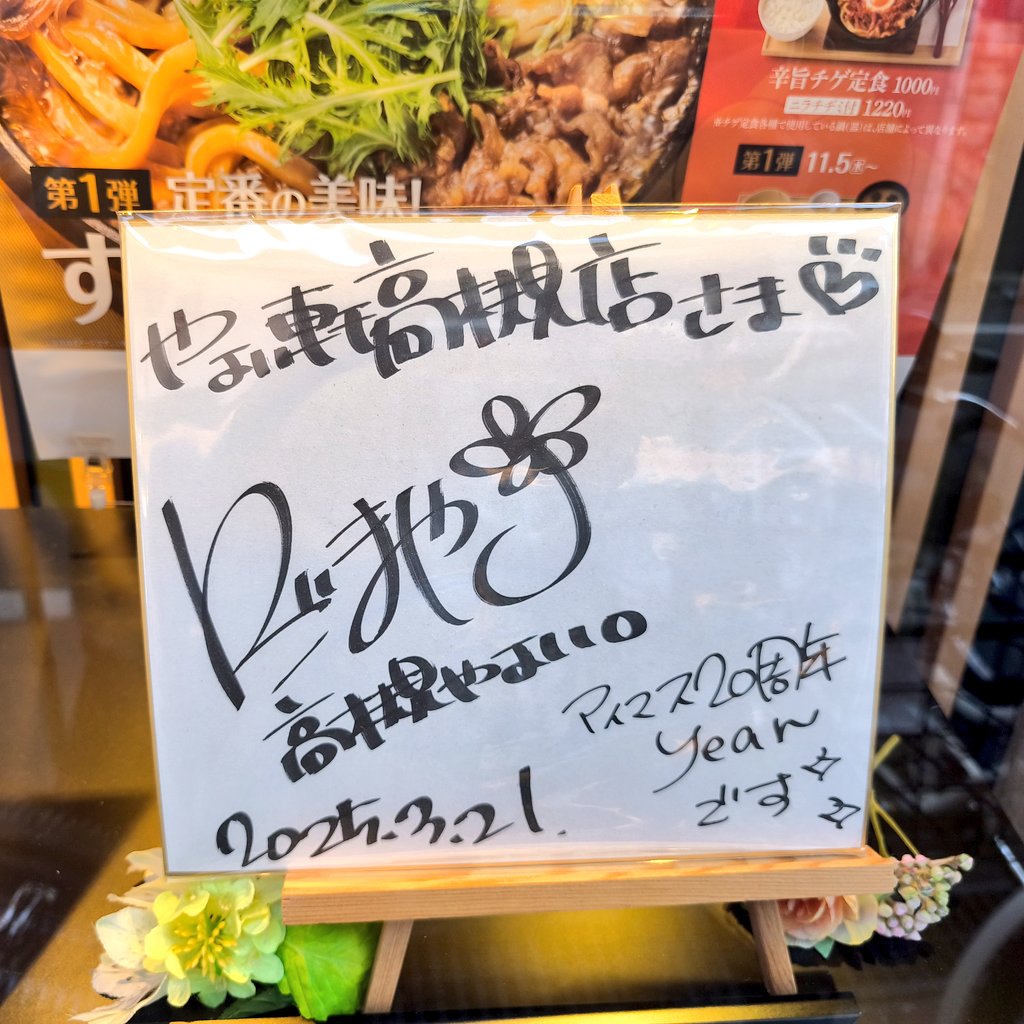 辛旨チゲ定食 1000円
ニラチヂミ付 1220円
※チゲ定食各種で使用している鍋(器)は、店舗によって異なります。
第1弾 11.5㊌~
第1弾 定番の美味!
す
やよい軒高槻店さま♡
高槻やよい
アイマス20周年
year
です☆
☆
2025.3.21.